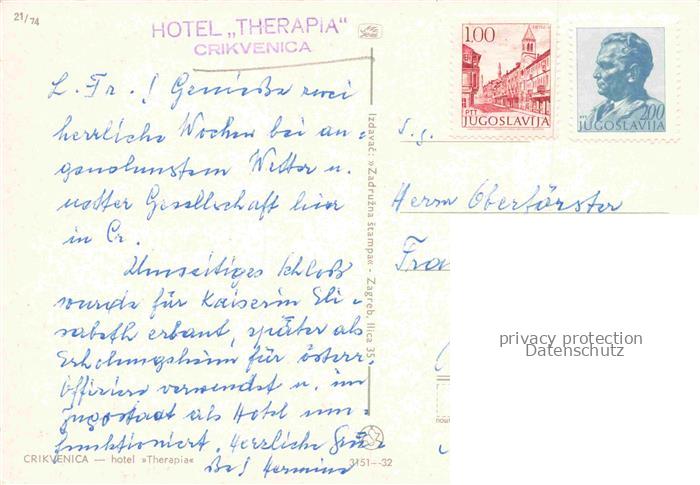 21/74
HOTEL „THERAPIA"
CRIKVENICA
L. Fr.! Genieße zwei
herrliche Wochen bei an-
genehmstem Wetter u.
netter Gesellschaft hier
in Cr.
Umseitiges Schloß
wurde für Kaiserin Eli-
sabeth erbaut, später als
Erholungsheim für österr.
Offiziere verwendet u. im
Jugostaat als Hotel um-
funktioniert. Herzliche Grüße
Hermine
CRIKVENICA — hotel »Therapia«
3151--32
Izdavač: »Zadružna štampa« - Zagreb, Ilica 35
1.00
PTT
JUGOSLAVIJA
2.00
JUGOSLAVIJA
S. g.
Herrn Oberförster
Fra
privacy protection
Datenschutz